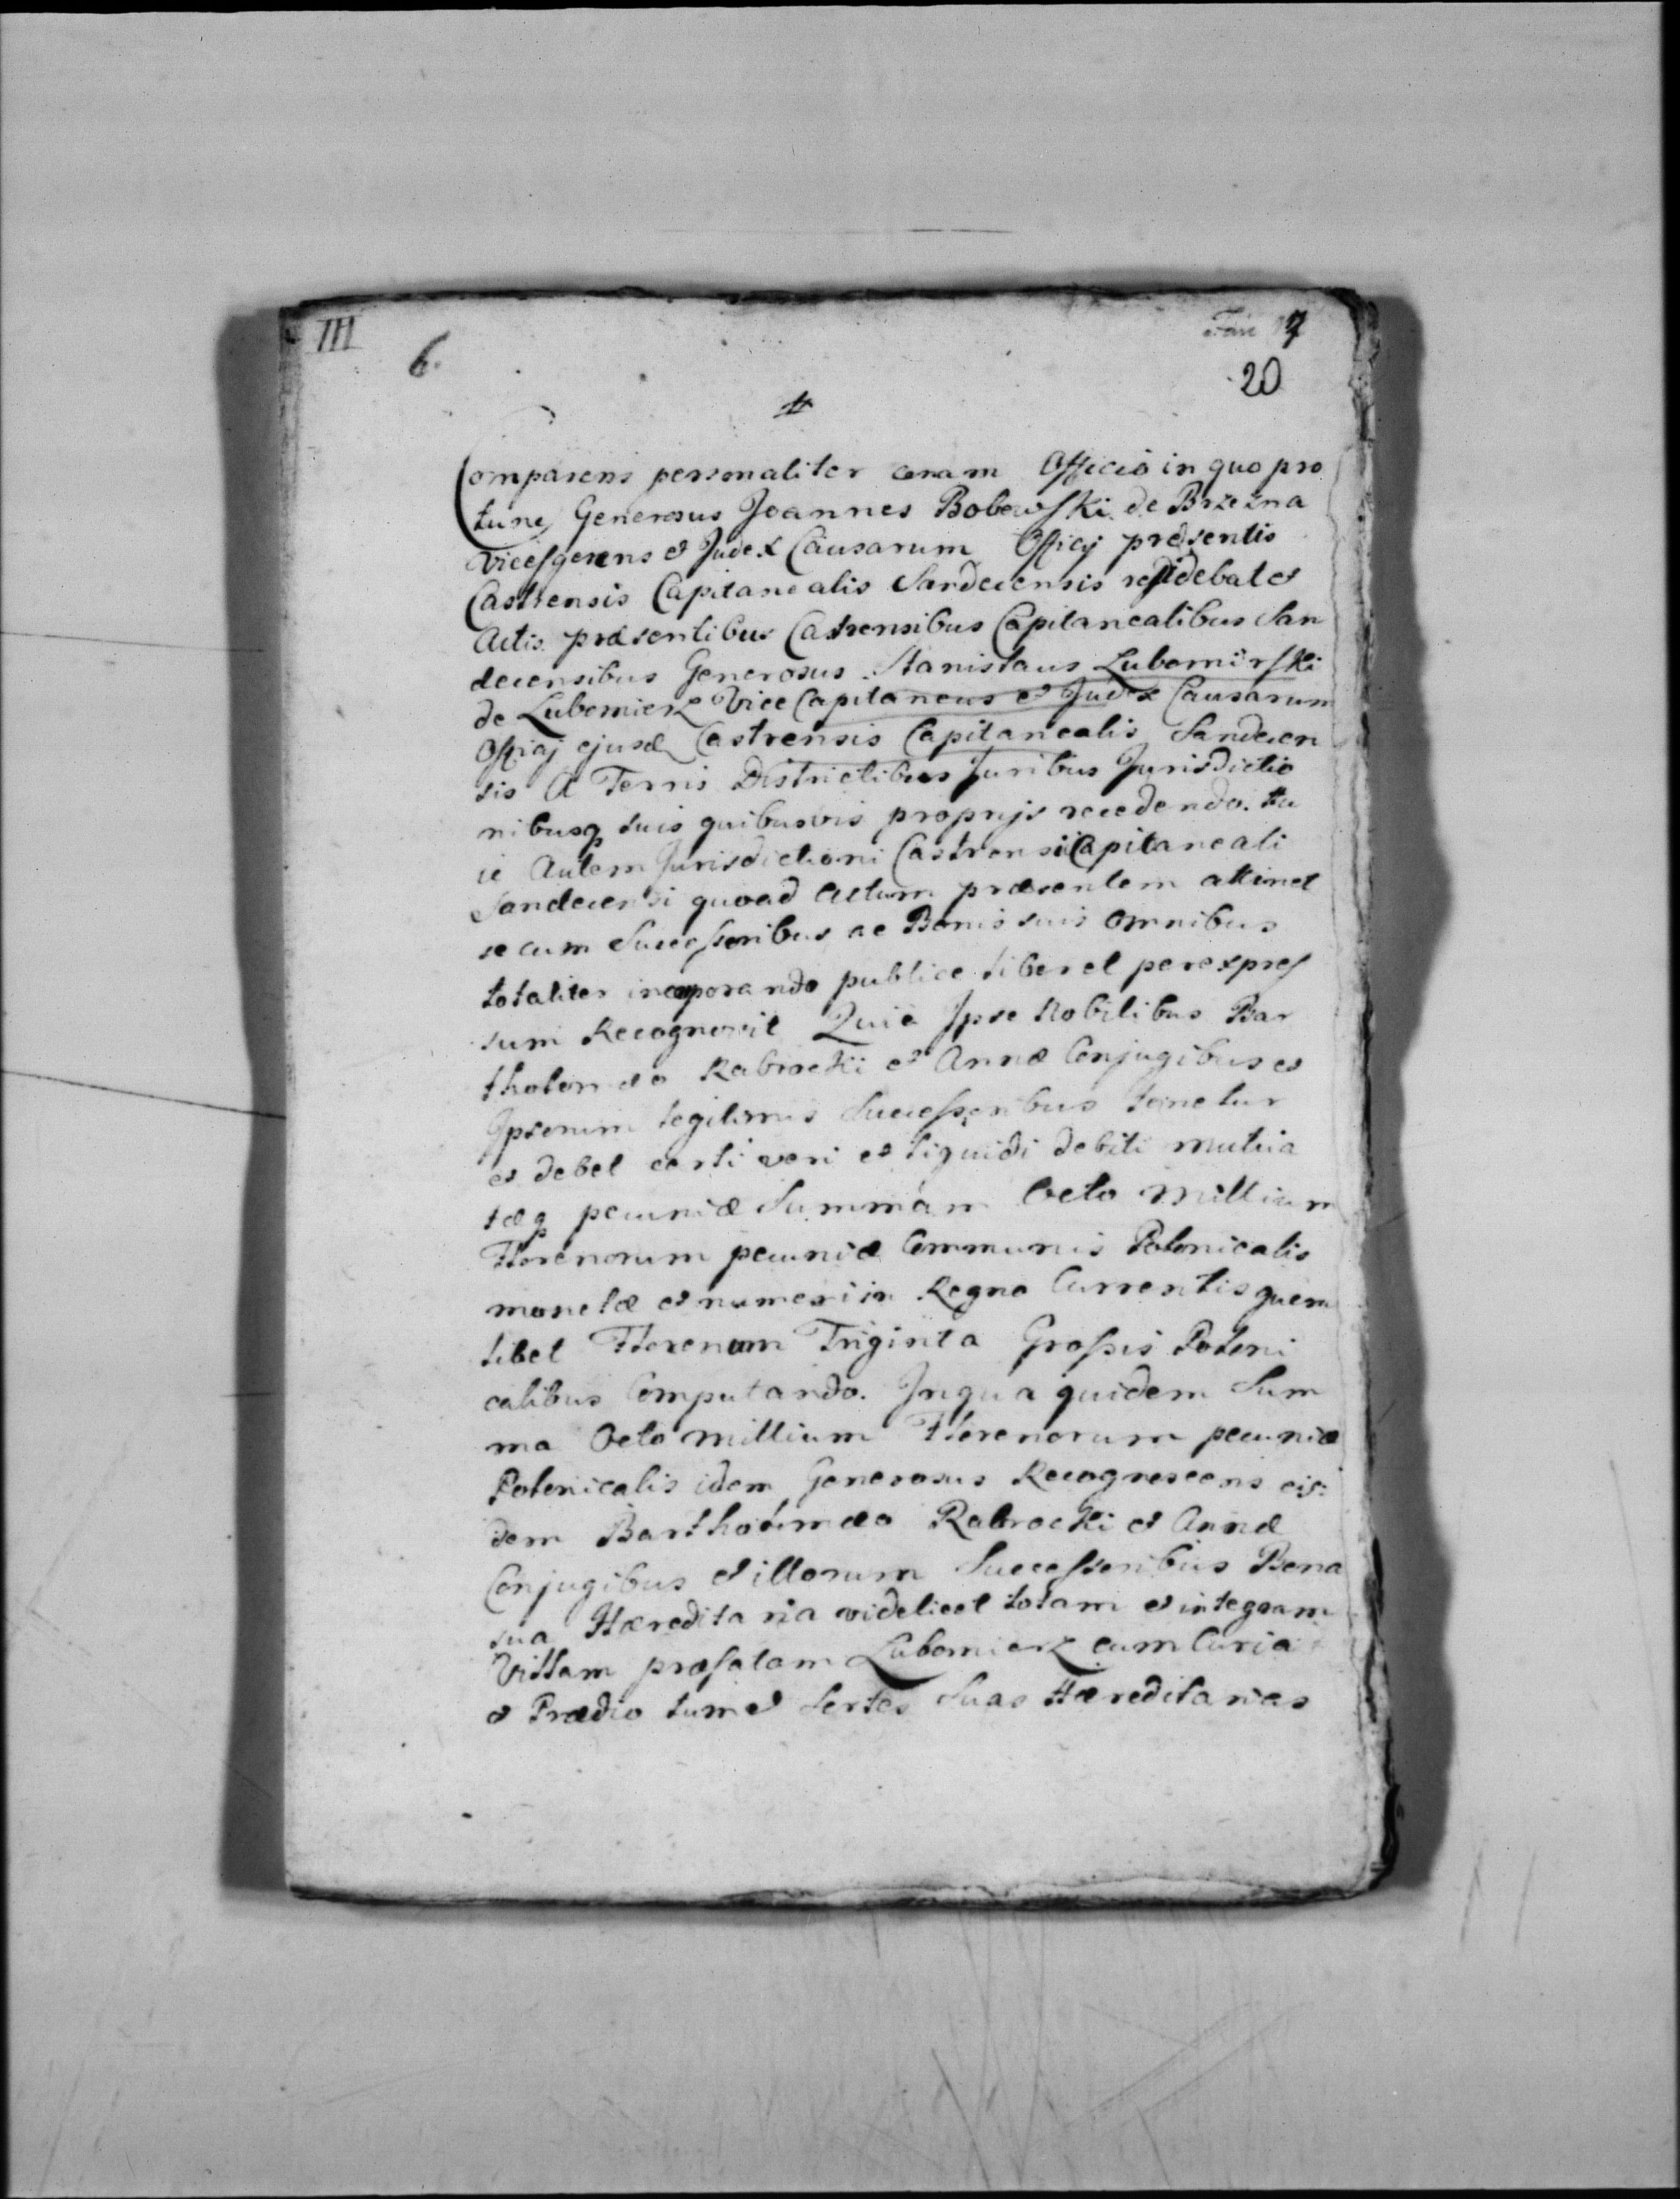 III
6.
7
20
Comparens personaliter coram Officio in quo pro
tunc Generosus Joannes Bobowski de Brzezna
Vicesgerens et Judex Causarum Officij præsentis
Castrensis Capitanealis Sandecensis residebat et
Actis præsentibus Castrensibus Capitanealibus San
decensibus Generosus Stanislaus Lubomirski
de Lubomierz Vice Capitaneus et Judex Causarum
Officij ejusd Castrensis Capitanealis Sandecen
sis A Terris Districtibus Juribus Jurisdictio
nibusq suis quibusvis proprijs recedendo. Hu
ic Autem Jurisdictioni Castrensi Capitaneali
Sandecensi quoad Actum præsentem attinet
se cum Successoribus ac Bonis suis omnibus
totaliter incorporando publice libere et per expres
sum Recognovit Quia Ipse Nobilibus Bar
tholomæo Rabrocki et Annæ Conjugibus et
Ipsorum legitimis Successoribus tenetur
et debet certi veri et liquidi debiti mutua
tæq pecuniæ Summam Octo Millium
Florenorum pecuniæ Communis Polonicalis
monetæ et numeri in Regno Currentis quem
libet Florenum Triginta Grossis Poloni
calibus Computando. In qua quidem Sum
ma Octo Millium Florenorum pecuniæ
Polonicalis idem Generosus Recognoscens eis
dem Bartholomæo Rabrocki et Annæ
Conjugibus et illorum Successoribus Bona
sua Hæreditaria videlicet totam et integram
Villam præfatam Lubomierz cum Curia
et Prædio tum et Sortes Suas Hæreditarias